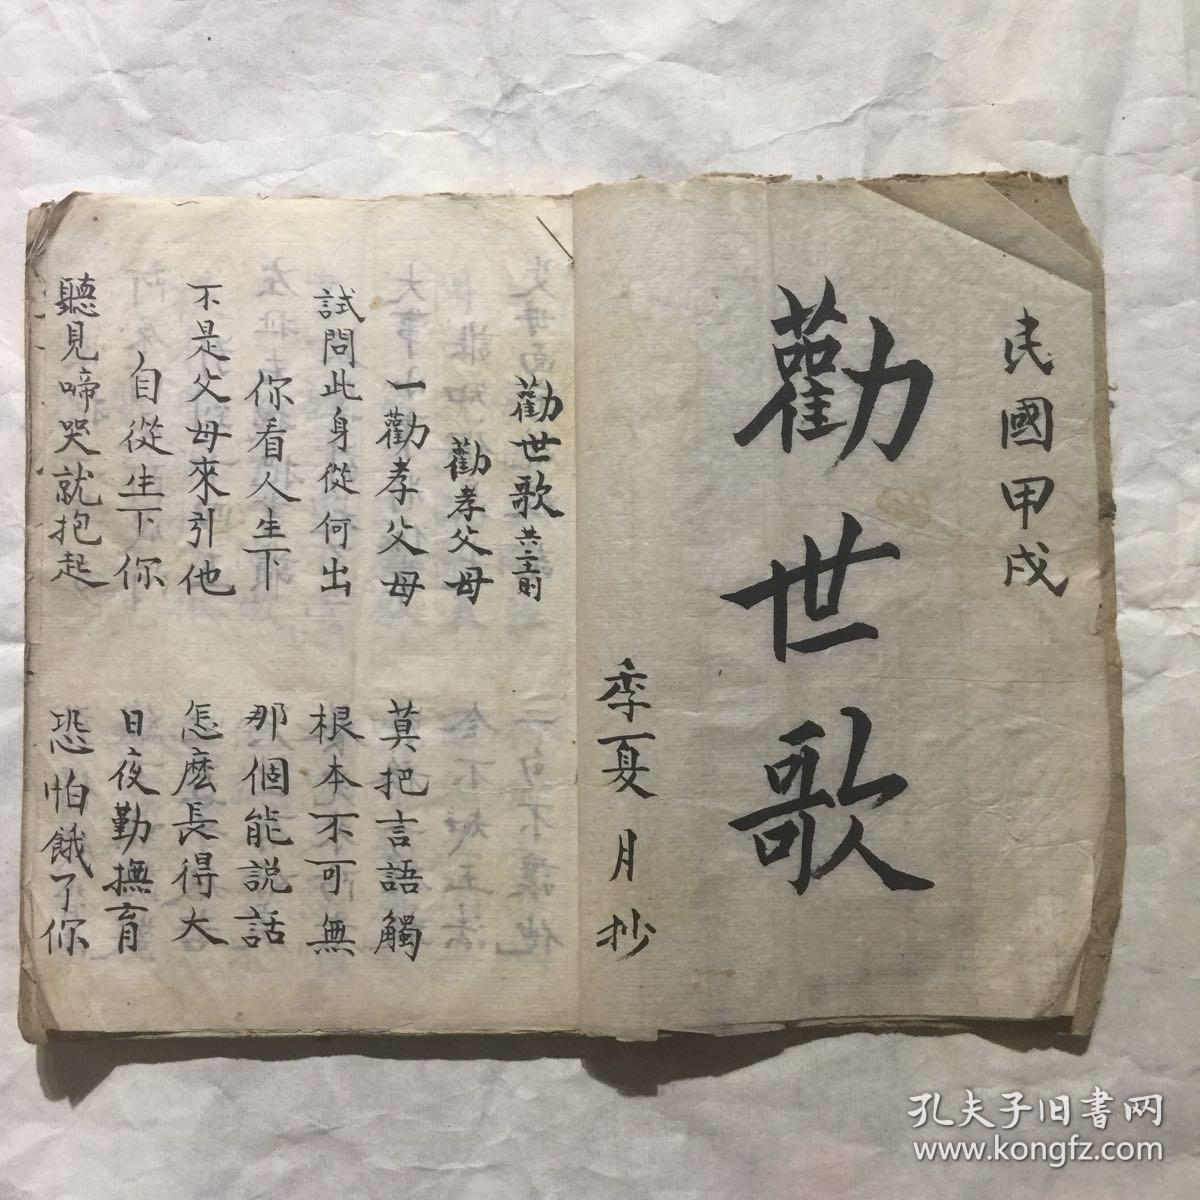 民國甲戌
勸世歌
季夏月抄
勸世歌 共
勸孝父母
一勸孝父母 莫把言語觸
試問此身從何出 根本不可無
你看人生下 那個能説話
不是父母來引他 怎麽長得大
自從生下你 日夜勤撫育
聽見啼哭就抱起 恐怕餓了你
孔夫子旧書网
www.kongfz.com